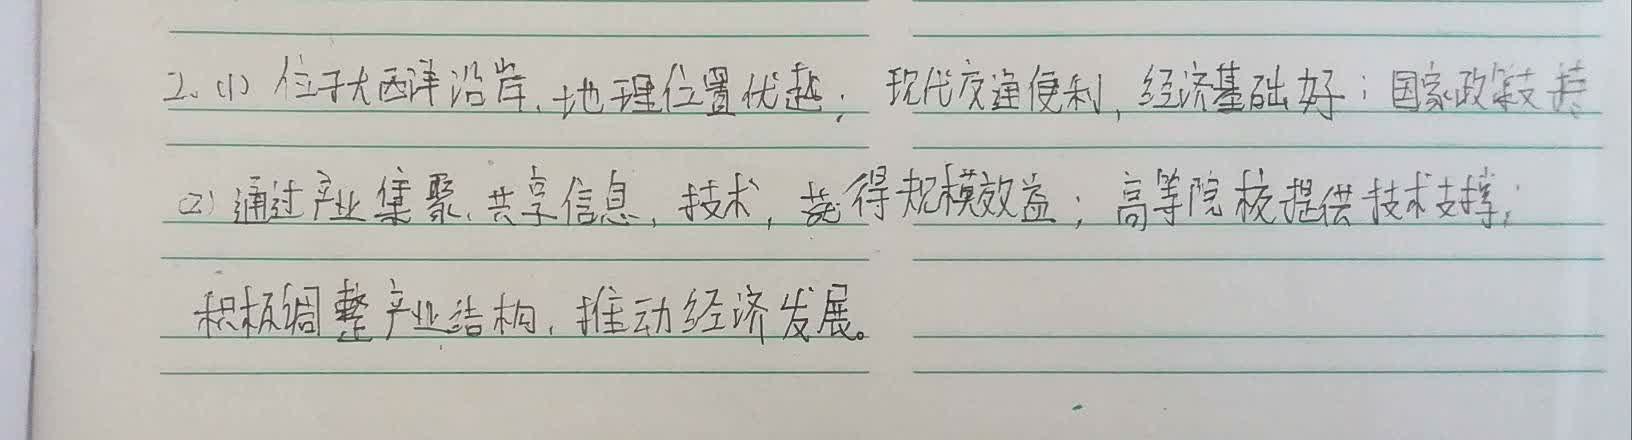 2.(1) 位于大西洋沿岸,地理位置优越; 现代交通便利,经济基础好;国家政策支持
(2) 通过产业集聚,共享信息,技术,获得规模效益;高等院校提供技术支撑;
积极调整产业结构,推动经济发展。